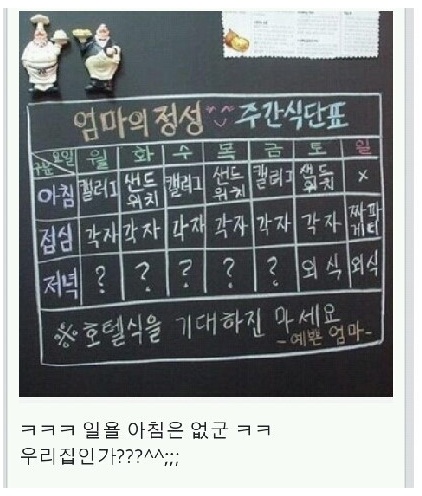 엄마의 정성 ^^ 주간식단표
구분 요일 월 화 수 목 금 토 일
아침 캘러그 샌드위치 캘러그 샌드위치 캘러그 샌드위치 x
점심 각자 각자 각자 각자 각자 각자 짜파게티
저녁 ? ? ? ? ? 외식 외식
※ 호텔식을 기대하진 마세요
-예쁜 엄마-
ㅋㅋㅋ 일욜 아침은 없군 ㅋㅋ
우리집인가???^^;;;